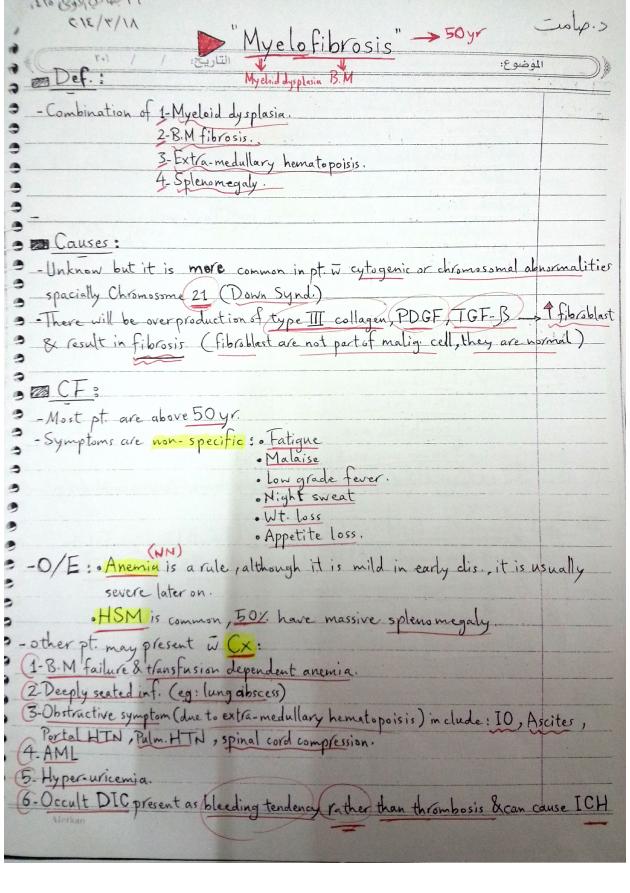 د. صامت
٢٠١٤/٣/١٨
"Myelofibrosis" → 50 yr
الموضوع:
التاريخ: / / ٢٠١
Myeloid dysplasia B.M
Def.:
- Combination of 1- Myeloid dysplasia.
2- B.M fibrosis.
3- Extra-medullary hematopoisis.
4- Splenomegaly.
-
Causes:
- Unknow but it is more common in pt. w̄ cytogenic or chromosomal abnormalities
spacially Chromosome 21 (Down Synd.)
- There will be overproduction of type III collagen, PDGF, TGF-β → ↑ fibroblast
& result in fibrosis (fibroblast are not part of malig. cell, they are normal)
CF:
- Most pt. are above 50 yr.
- Symptoms are non-specific : • Fatigue
• Malaise
• Low grade fever.
• Night sweat
• Wt. loss
• Appetite loss.
(NN)
- O/E : • Anemia is a rule, although it is mild in early dis., it is usually
severe later on.
• HSM is common, 50% have massive splenomegaly.
- other pt. may present w̄ Cx:
1- B.M failure & transfusion dependent anemia.
2- Deeply seated inf. (eg: lung abscess)
3- Obstructive symptom (due to extra-medullary hematopoisis) include: IO, Ascites,
Portal HTN, Pulm. HTN, spinal cord compression.
4- AML
5- Hyper-uricemia.
6- Occult DIC present as bleeding tendency rather than thrombosis & can cause ICH